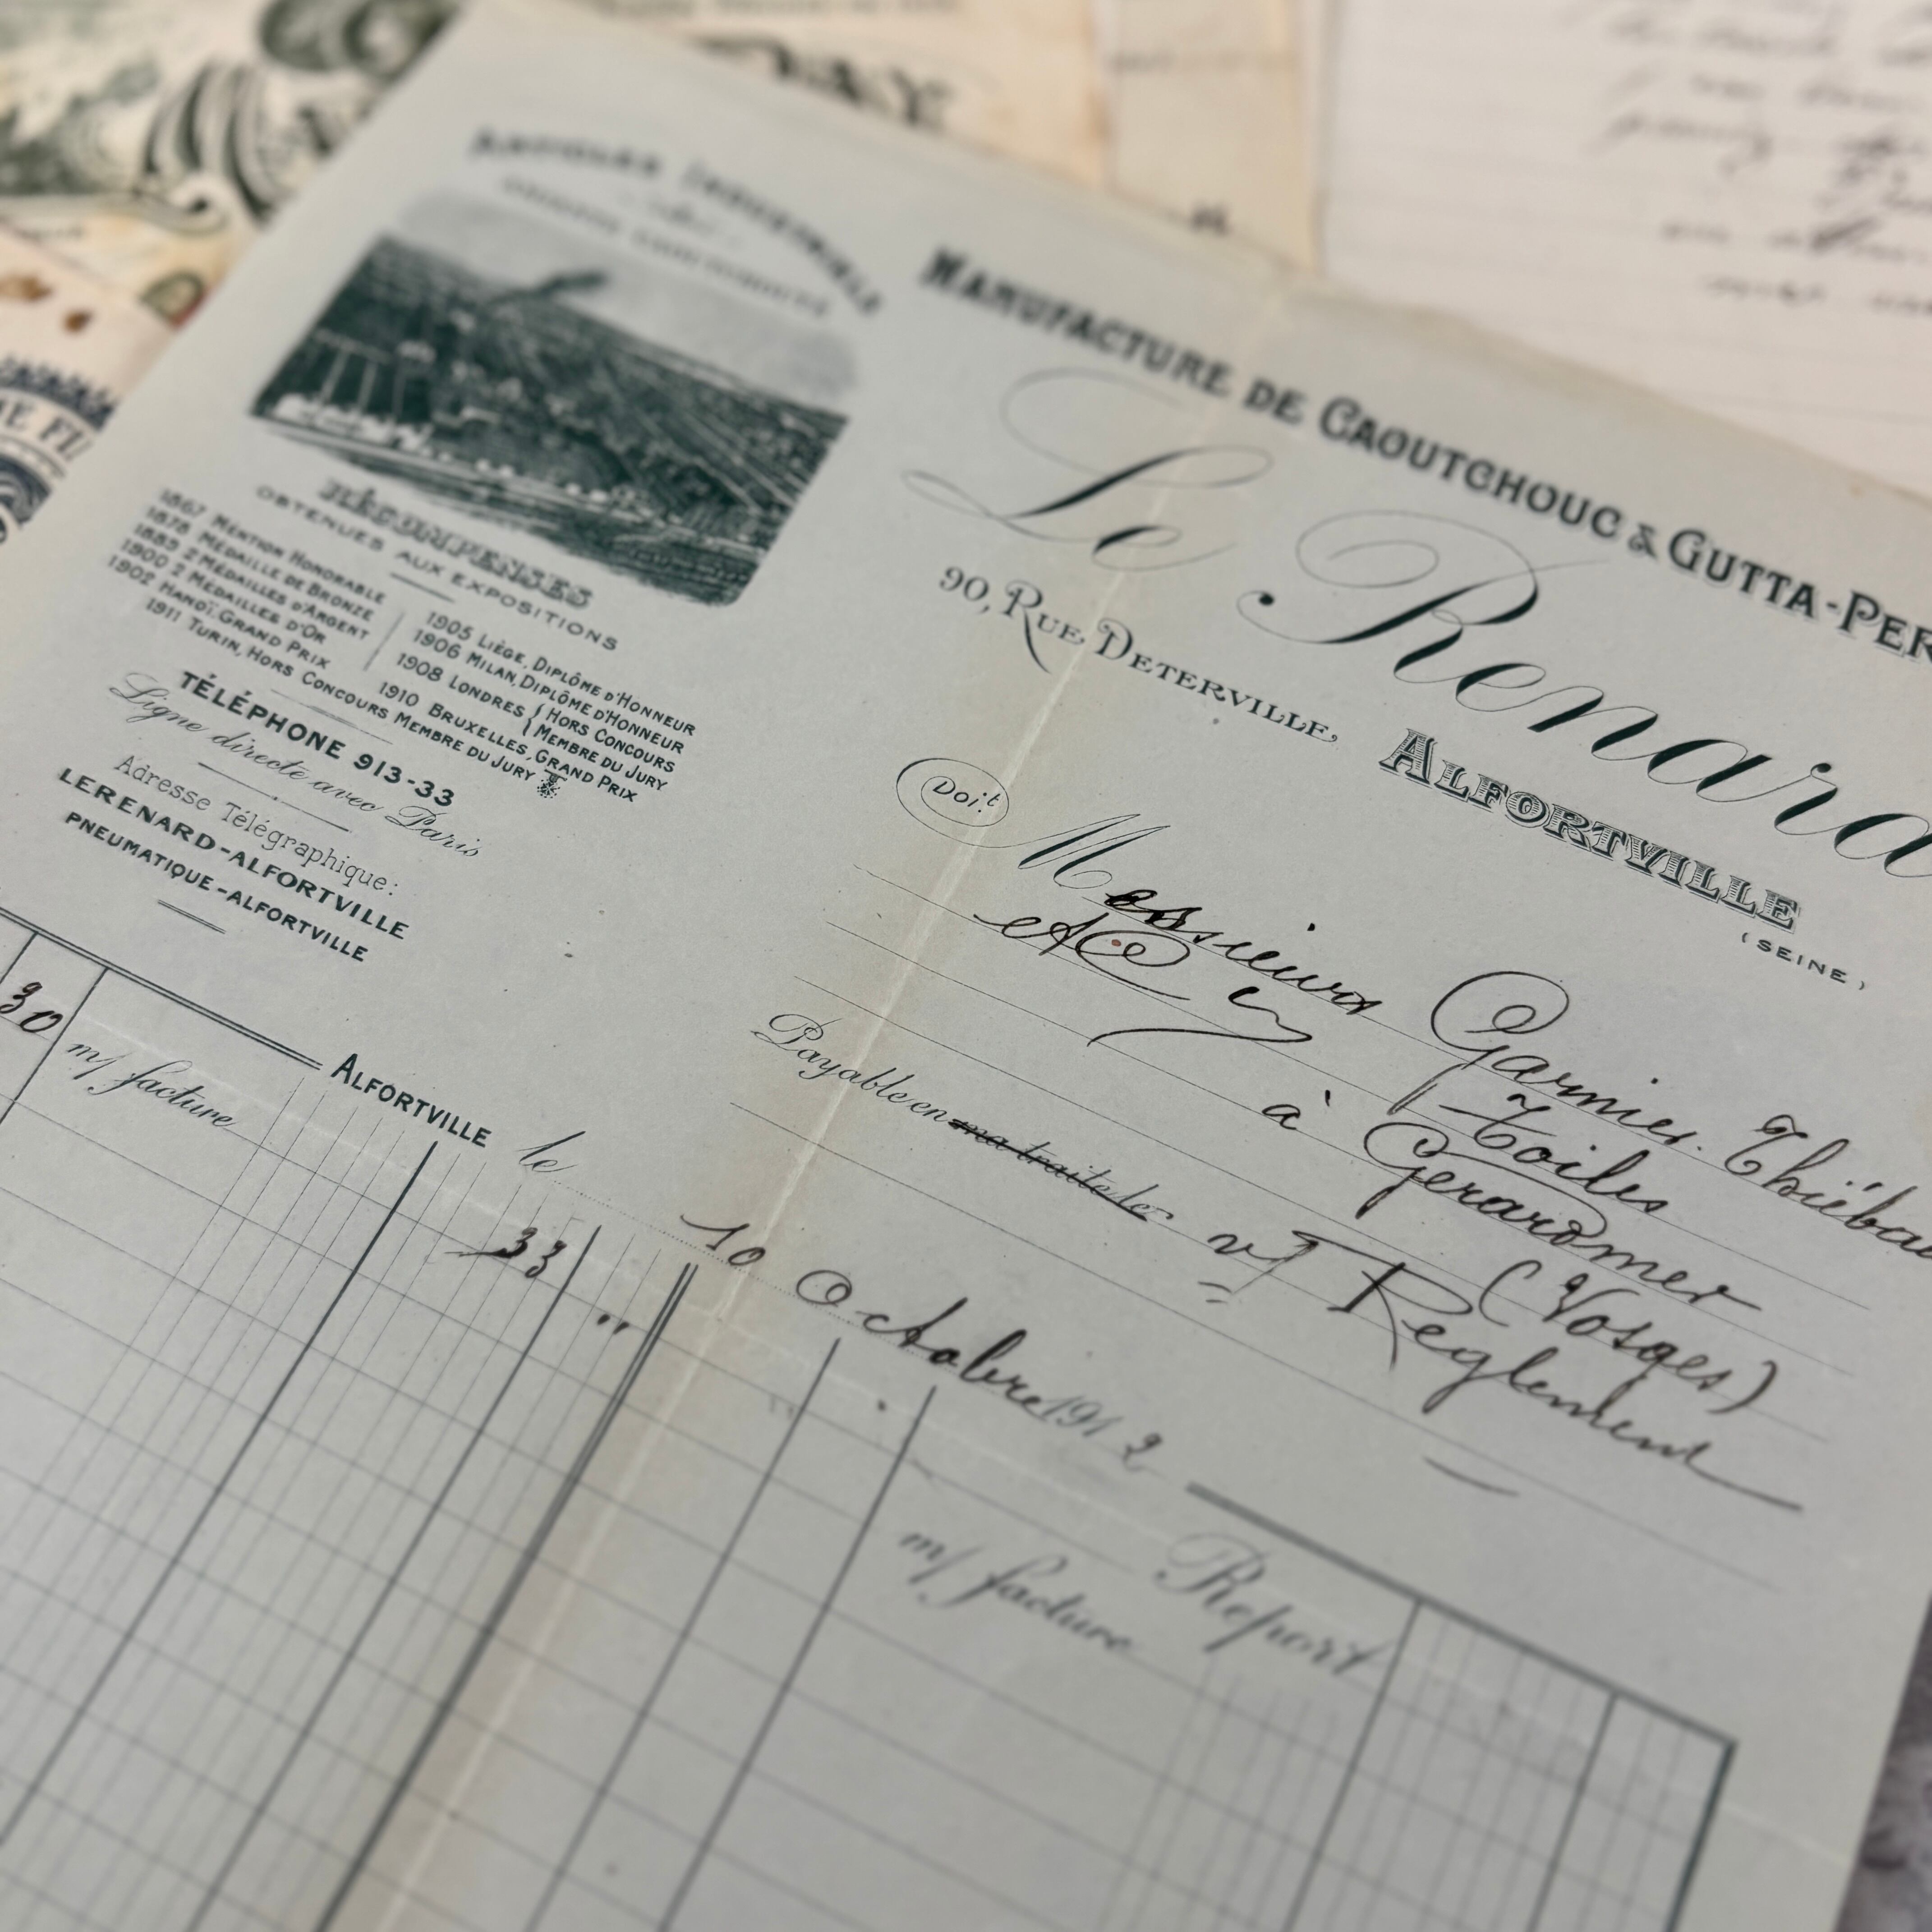 ARTICLES INDUSTRIELS
MANUFACTURE DE CAOUTCHOUC & GUTTA-PER
Le Renard
90, RUE DETERVILLE, ALFORTVILLE
(SEINE)
RÉCOMPENSES
OBTENUES AUX EXPOSITIONS
1867 MENTION HONORABLE
1878 MÉDAILLE DE BRONZE
1889 2 MÉDAILLES D'ARGENT
1900 2 MÉDAILLES D'OR
1902 HANOÏ, GRAND PRIX
1905 LIÉGE, DIPLÔME D'HONNEUR
1906 MILAN, DIPLÔME D'HONNEUR
1908 LONDRES { HORS CONCOURS
{ MEMBRE DU JURY
1910 BRUXELLES, GRAND PRIX
1911 TURIN, HORS CONCOURS MEMBRE DU JURY
TÉLÉPHONE 913-33
Ligne directe avec Paris
Adresse Télégraphique:
LERENARD-ALFORTVILLE
PNEUMATIQUE-ALFORTVILLE
Doit Messieurs Garnier. Thiébau
et Cie Toiles
à Gerardmer
(Vosges)
Payable en ma traite le vf Reglement
ALFORTVILLE le 10 Octobre 1912
30 m/ facture 33 "
Report
m/ facture